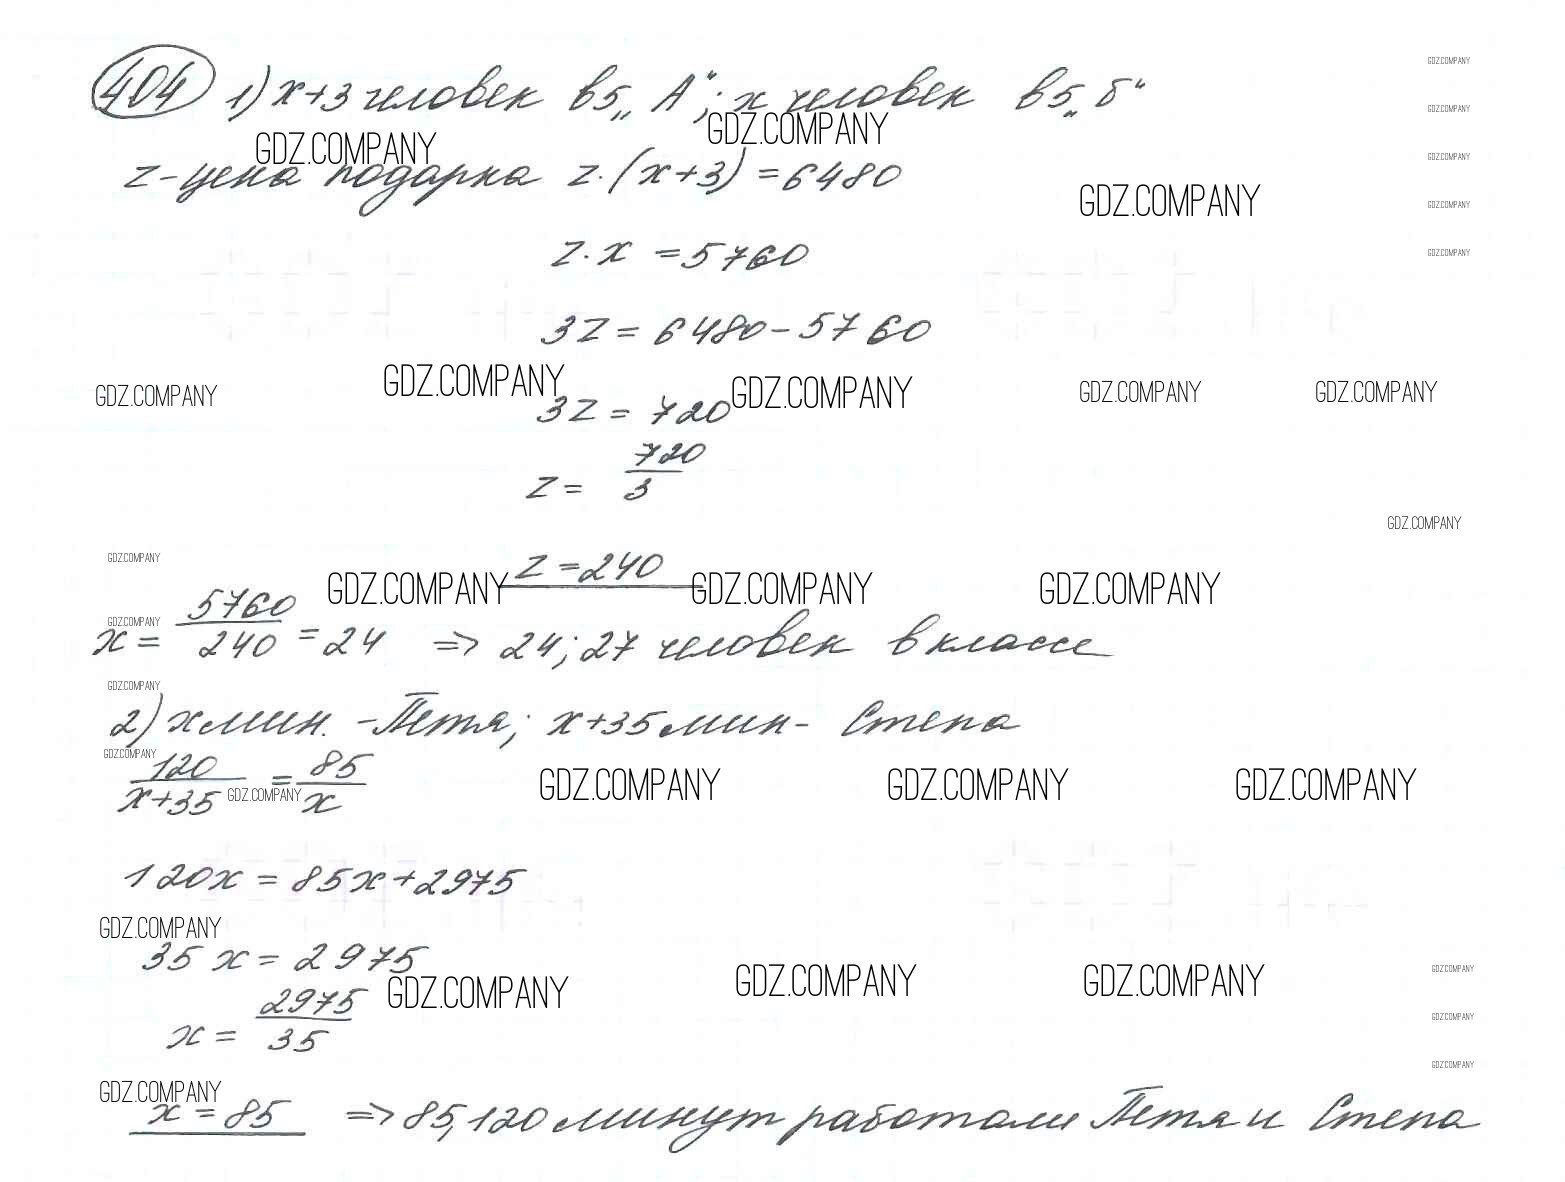 404 1) x+3 человек в 5 „А“; x человек в 5 „Б“
GDZ.COMPANY GDZ.COMPANY
z - цена подарка z·(x+3) = 6480
GDZ.COMPANY
z·x = 5760
3z = 6480 - 5760
GDZ.COMPANY GDZ.COMPANY GDZ.COMPANY GDZ.COMPANY GDZ.COMPANY
3z = 720
z = 720/3
GDZ.COMPANY
z = 240
GDZ.COMPANY GDZ.COMPANY GDZ.COMPANY GDZ.COMPANY
x = 5760/240 = 24 => 24; 27 человек в классе
GDZ.COMPANY
GDZ.COMPANY
2) x мин. - Петя; x+35 мин - Степа
GDZ.COMPANY
120/(x+35) = 85/x
GDZ.COMPANY GDZ.COMPANY GDZ.COMPANY GDZ.COMPANY
120x = 85x + 2975
GDZ.COMPANY
35x = 2975
GDZ.COMPANY GDZ.COMPANY GDZ.COMPANY
x = 2975/35
GDZ.COMPANY
x = 85 => 85, 120 минут работали Петя и Степа
GDZ.COMPANY
GDZ.COMPANY
GDZ.COMPANY
GDZ.COMPANY
GDZ.COMPANY
GDZ.COMPANY
GDZ.COMPANY
GDZ.COMPANY